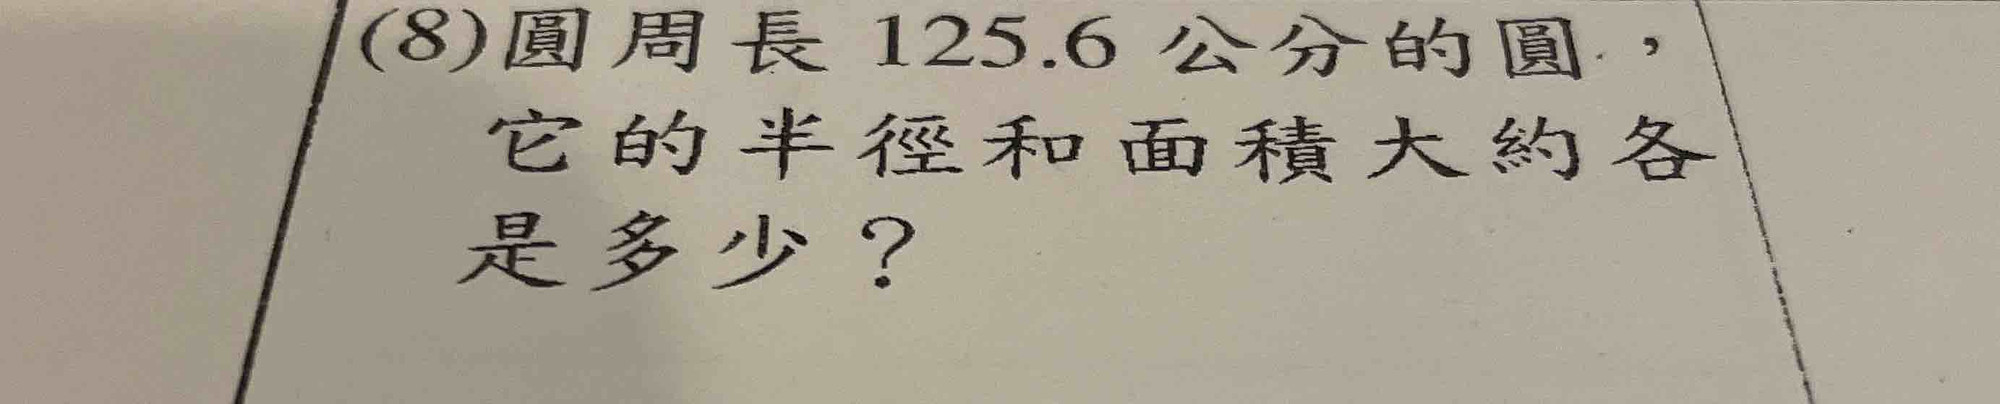 (8)圓周長 125.6 公分的圓，
它的半徑和面積大約各
是多少？